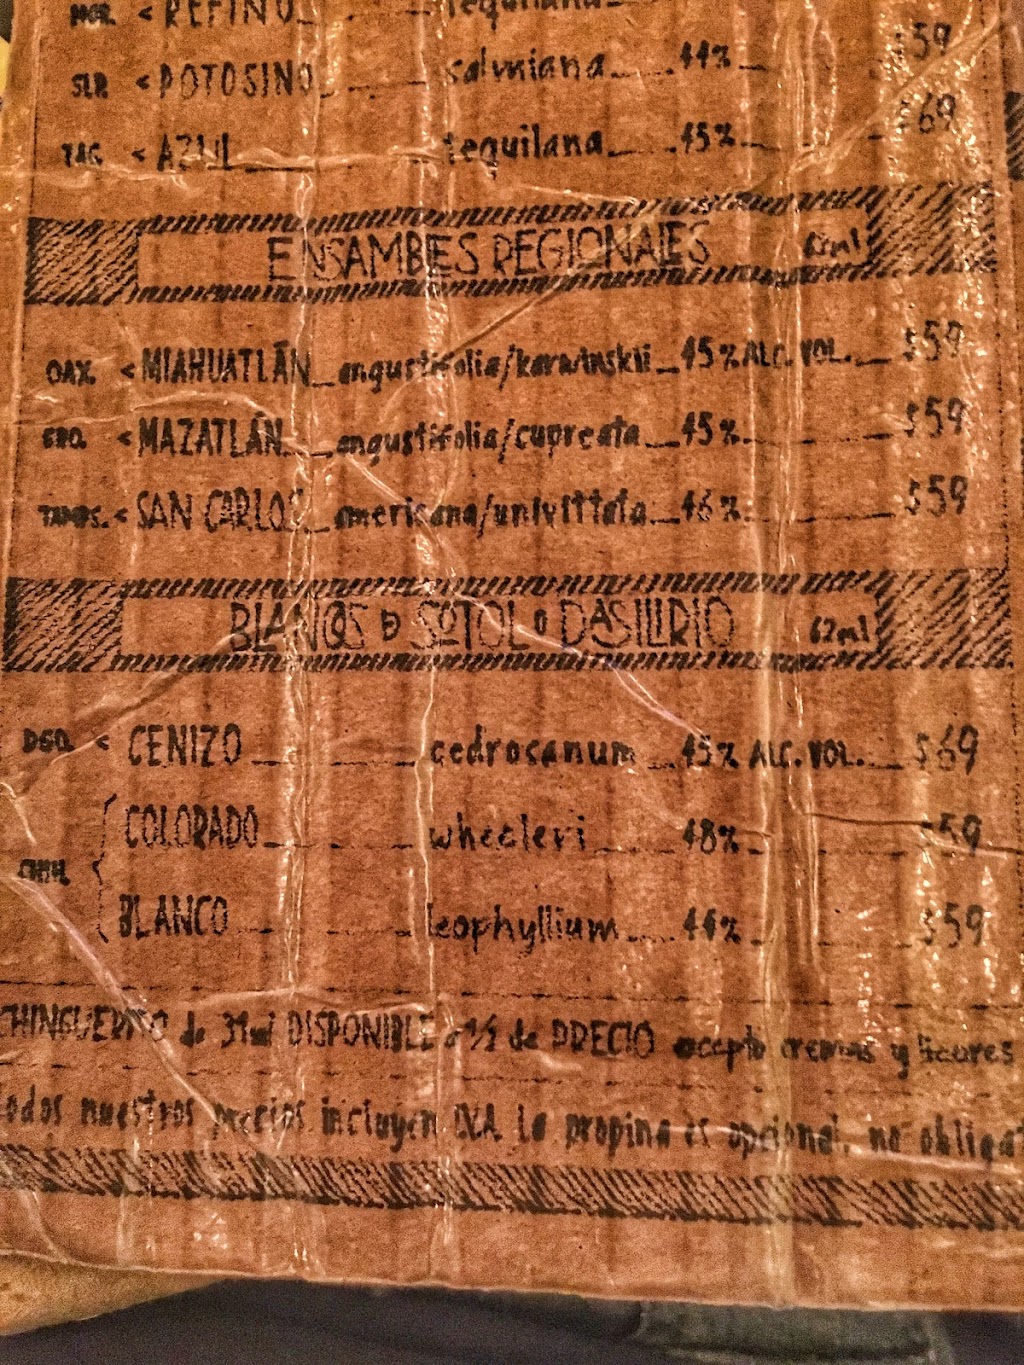 MOR. < REFINO tequilana $59
SLP. < POTOSINO salmiana 44% $69
< AZUL tequilana 45%
ENSAMBLES REGIONALES 62ml
OAX. < MIAHUATLÁN angustifolia/karwinskii 45% ALC. VOL. $59
GRO. < MAZATLÁN angustifolia/cupreata 45% $59
TAMPS. < SAN CARLOS americana/univittata 46% $59
BLANCOS D SOTOL o DASILIRIO 62ml
DGO. < CENIZO cedrosanum 45% ALC. VOL. $69
COLORADO wheeleri 48% $59
CHIH.
BLANCO leophyllium 44% $59
CHINGUERITO de 31ml DISPONIBLE a ½ de PRECIO excepto cremas y licores
odos nuestros precios incluyen I.V.A. La propina es opcional, no obligat